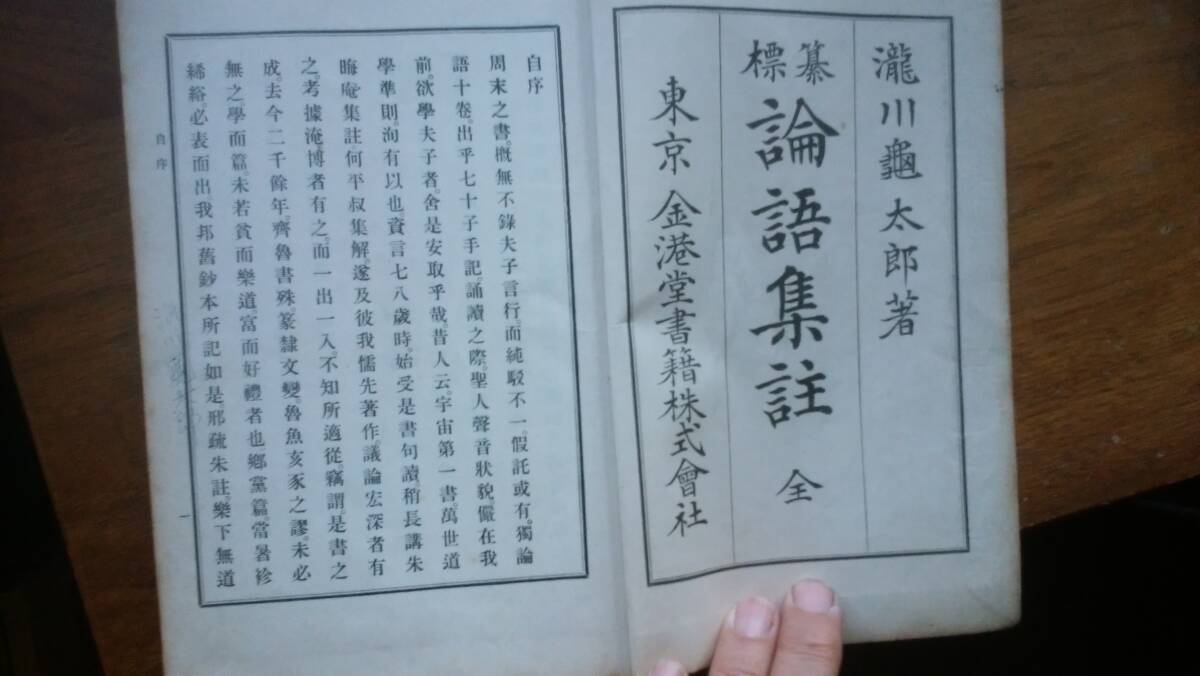 瀧川龜太郎著
纂標
論語集註
全
東京 金港堂書籍株式會社
自序
周末之書。槪無不錄夫子言行。而純駁不一。假託或有。獨論
語十卷。出乎七十子手記。誦讀之際。聖人聲音狀貌儼在我
前。欲學夫子者。舍是安取乎哉。昔人云。宇宙第一書。萬世道
學準則。洵有以也。資言七八歲時。始受是書句讀。稍長講朱
晦庵集註何平叔集解。遂及彼我儒先著作。議論宏深者有
之。考據淹博者有之。而一出一入。不知所適從。竊謂。是書之
成。去今二千餘年。齊魯書殊。篆隸文變。魯魚亥豕之謬。未必
無之。學而篇。未若貧而樂道。富而好禮者也鄉黨篇。當暑袗
絺綌。必表而出我邦舊鈔本所記如是。邢疏朱註。樂下無道
自序
一